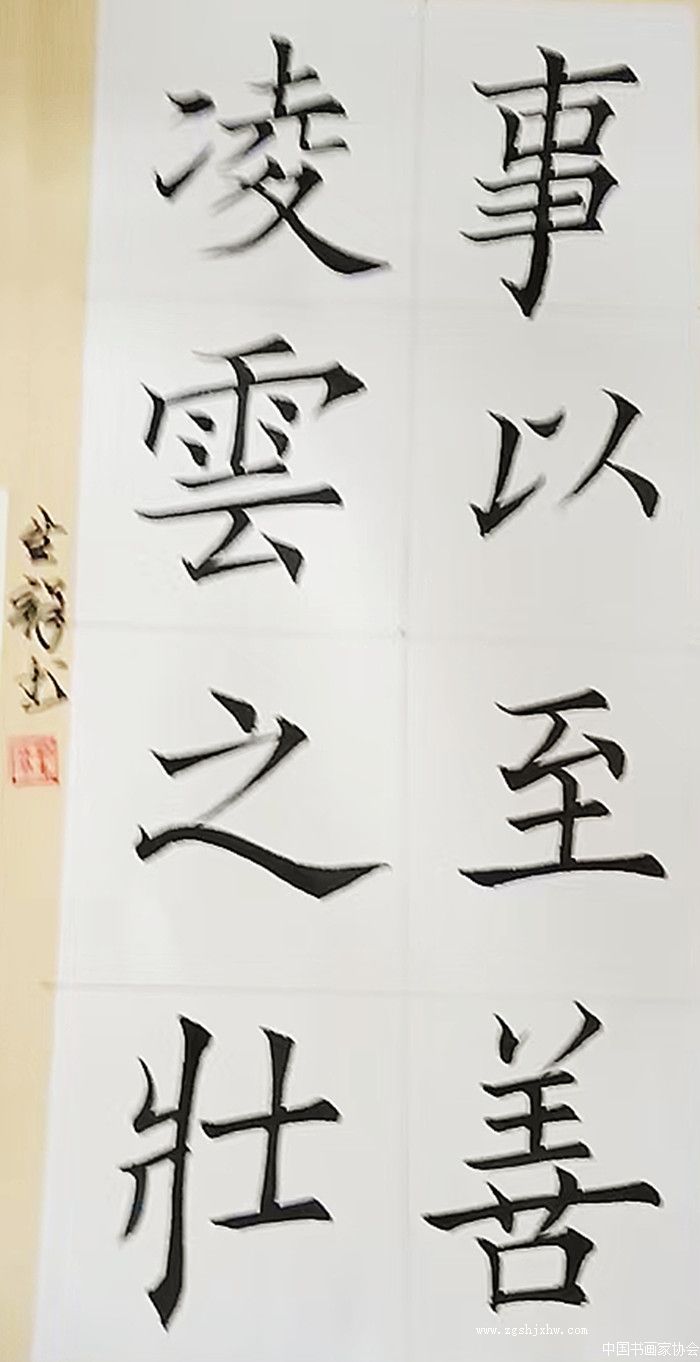 事以至善
凌雲之壯
www.zgshjxhw.com
中国书画家协会